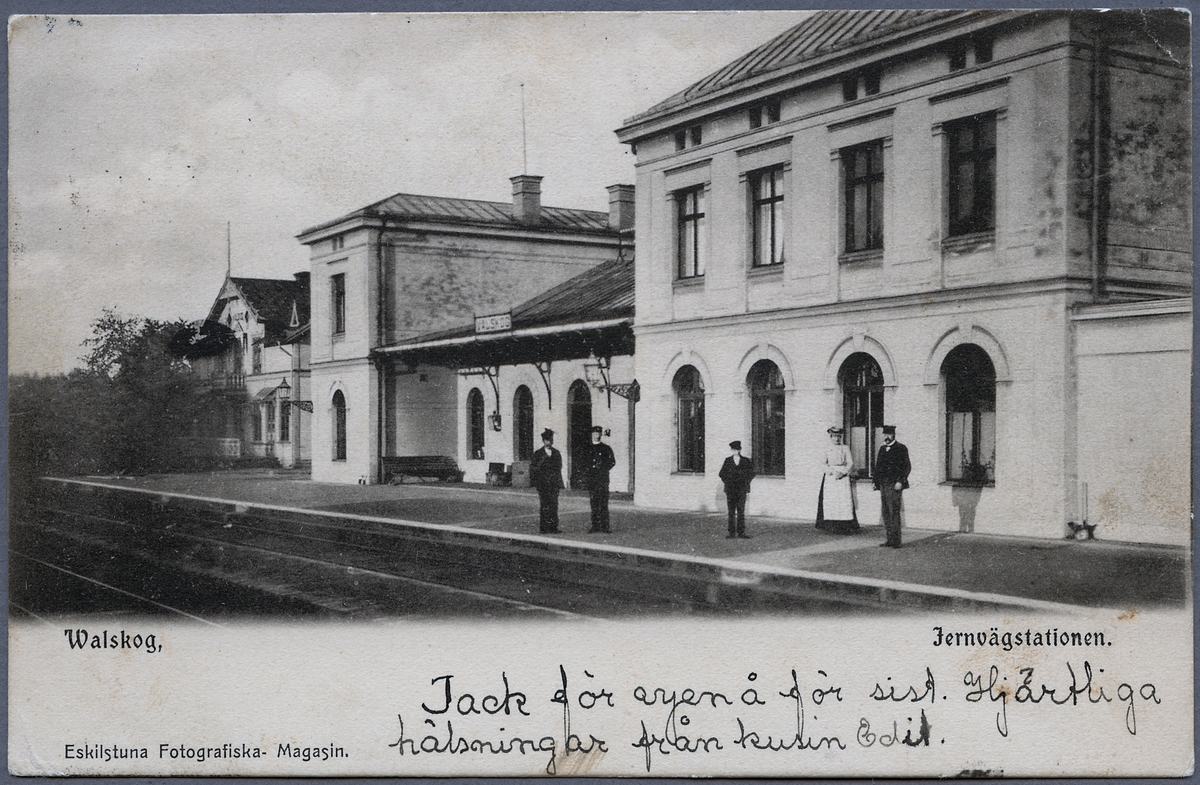 VALSKOG
Walskog,
Jernvägstationen.
Tack för syenå för sist. Hjärtliga
hälsningar från kusin Edit.
Eskilstuna Fotografiska- Magasin.